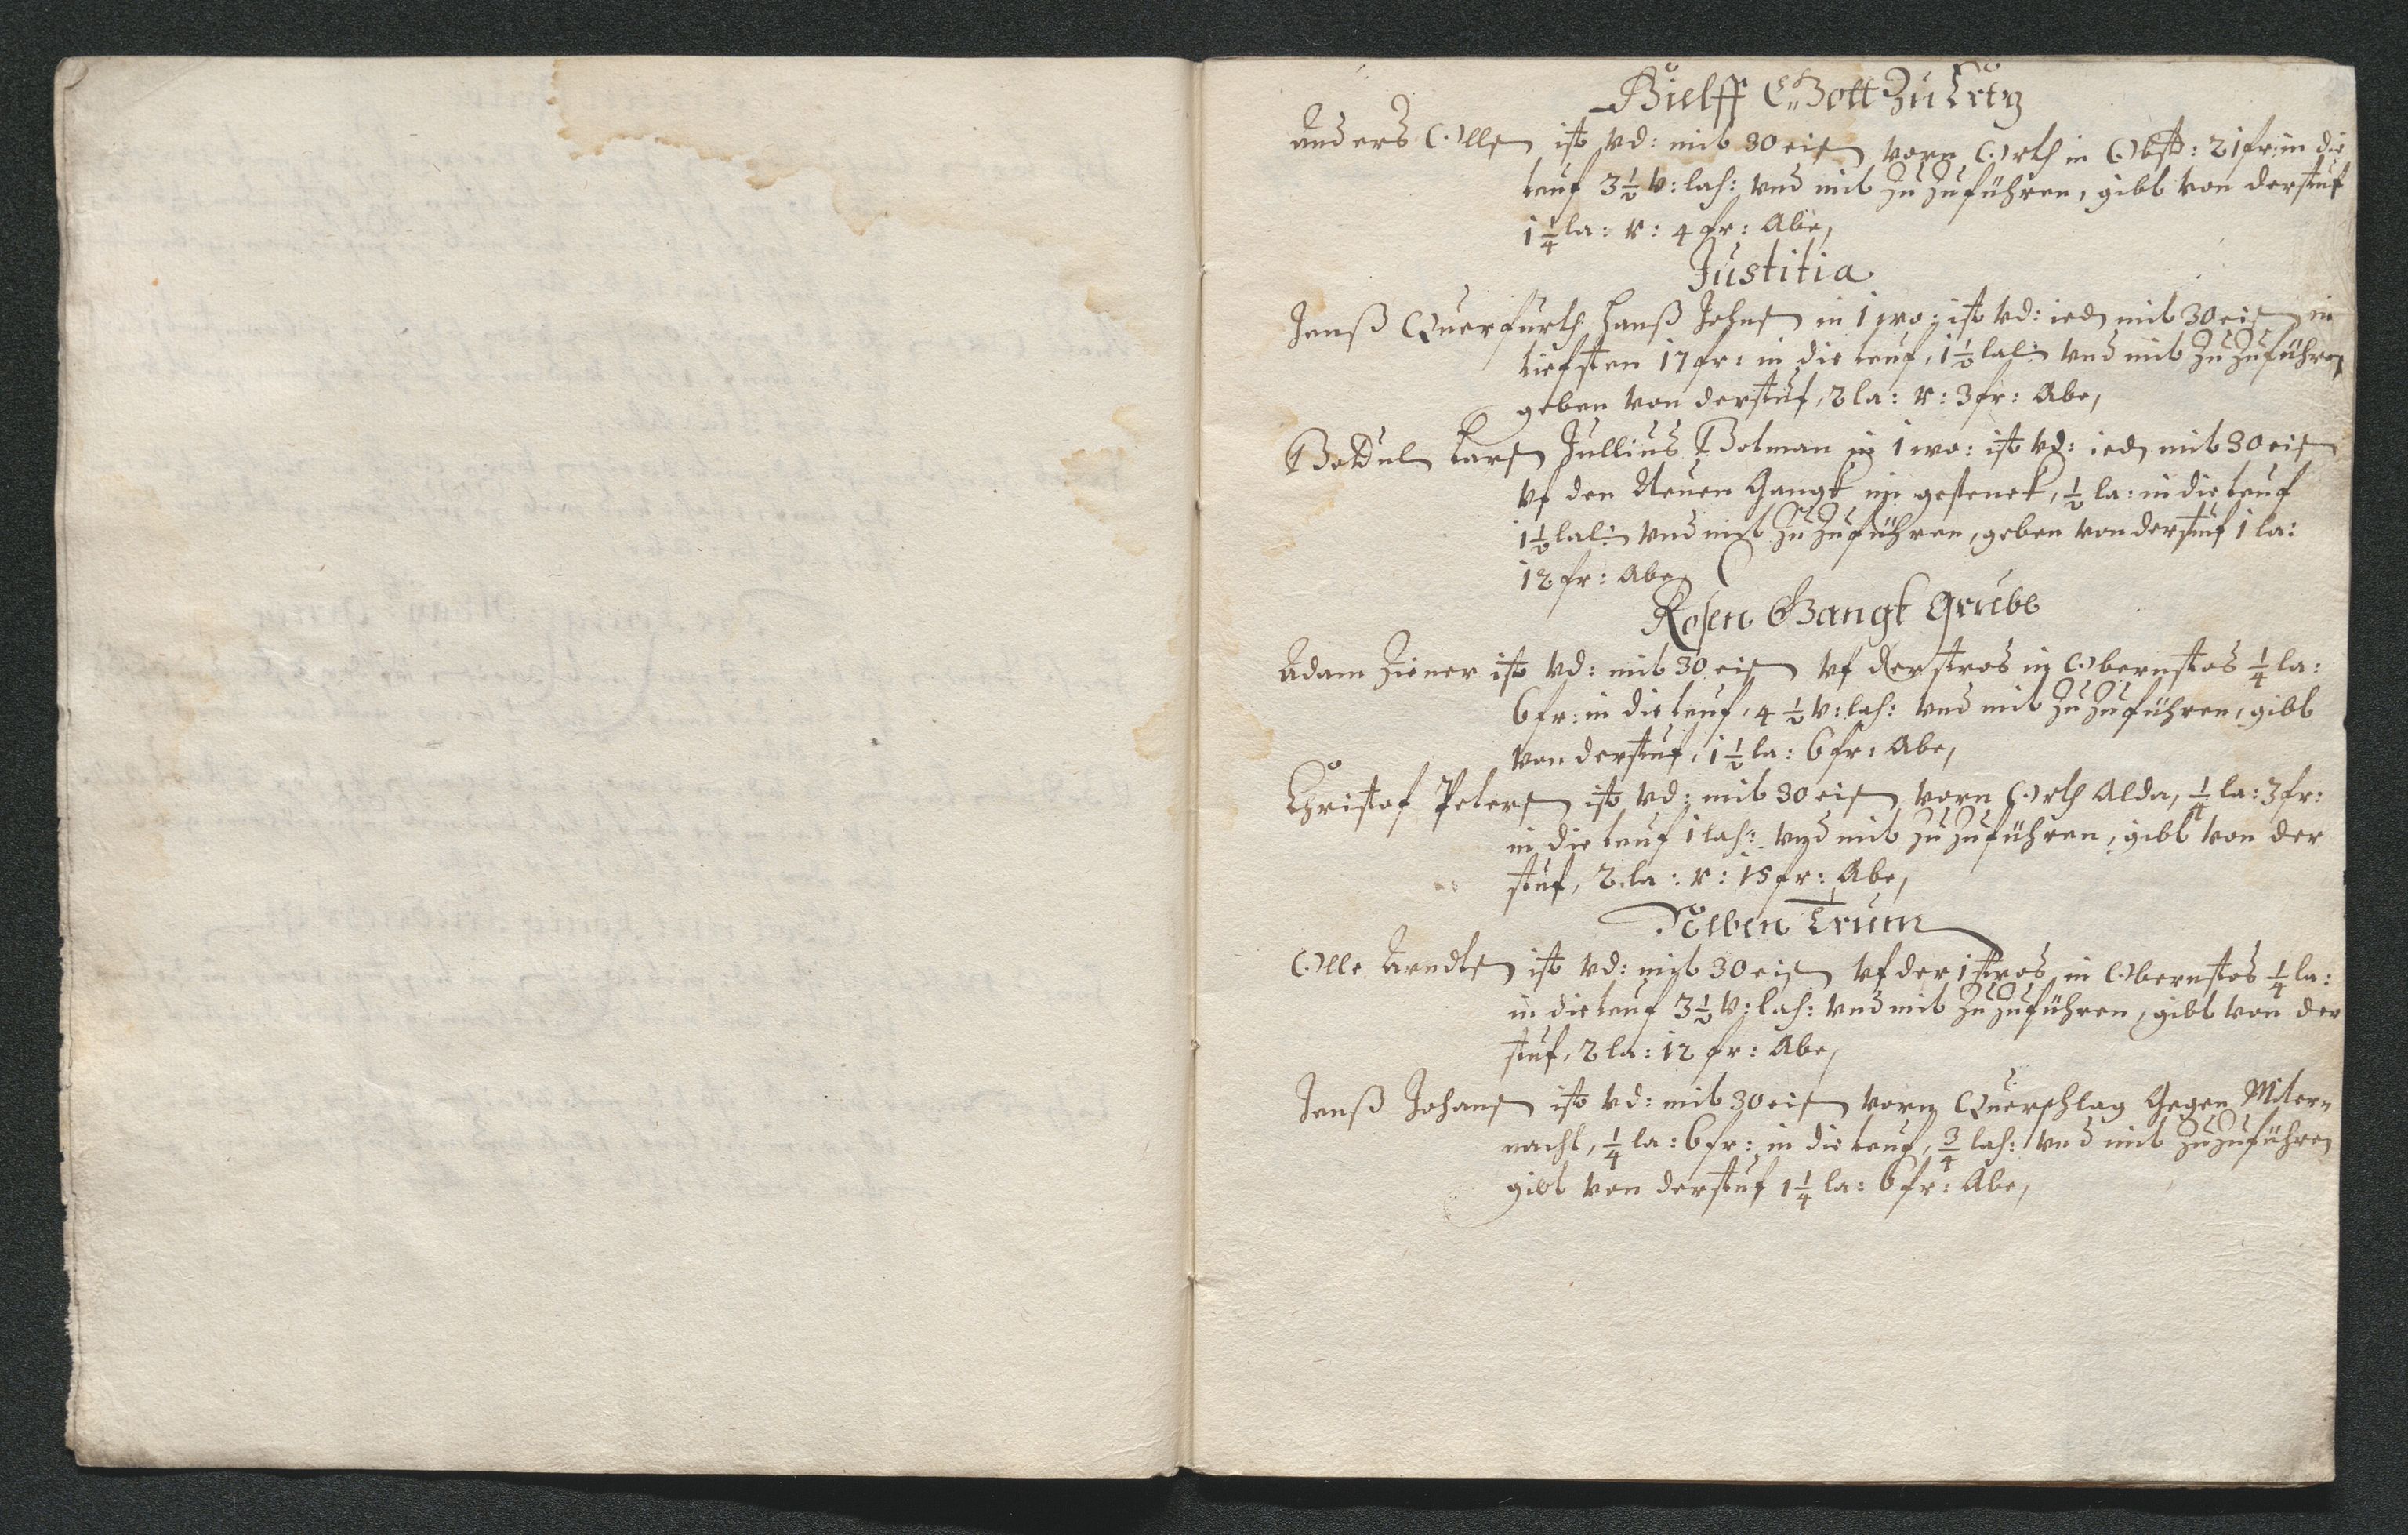 Hielff Gott Zu Ertz
Anders Ollsen ist vd: mit 30 eisen vorn Orth in Obst: 21 fr: in die
teuf 3½ v: lah: vnd mit zuzuführen, gibt von der stuf
1¼ la: v: 4 fr: Abe,
Justitia
Jenß Querfurth Hanß Johnsen in 1 wo: ist vd: ieden mit 30 eisen in
tiefsten 17 fr: in die teuf, 1½ lah: vnd mit zuzuführen
geben von der stuf, 2 la: v: 3 fr: Abe,
Larsen Jullius Bolman in 1 wo: ist vd: ieden mit 30 eisen
vf den Neuen Gangk im gesenek, ½ la: in die teuf
1½ lah: vnd mit zuzuführen, geben von der stuf 1 la:
12 fr: Abe,
Rosen Gangk Grube
Adam Ziener ist vd: mit 30 eisen vf der stros in Obernstos ¼ la:
6 fr: in die teuf, 4½ v: lah: vnd mit zuzuführen, gibt
von der stuf, 1½ la: 6 fr: Abe,
Christof Petersen ist vd: mit 30 eisen vorn Orth Alda, ¼ la: 3 fr:
in die teuf 1 lah: vnd mit zuzuführen, gibt von der
stuf, 2 la: v: 15 fr: Abe,
Neben Trum
Olle Arndtsen ist vd: mit 30 eisen vf der 1 stros in Obernstos ¼ la:
in die teuf 3½ v: lah: vnd mit zuzuführen, gibt von der
stuf, 2 la: 12 fr: Abe,
Jenß Johansen ist vd: mit 30 eisen vorn Querschlag Gegen Miter
nacht, ¼ la: 6 fr: in die teuf, ¾ lah: vnd mit zuzuführen
gibt von der stuf 1¼ la: 6 fr: Abe,